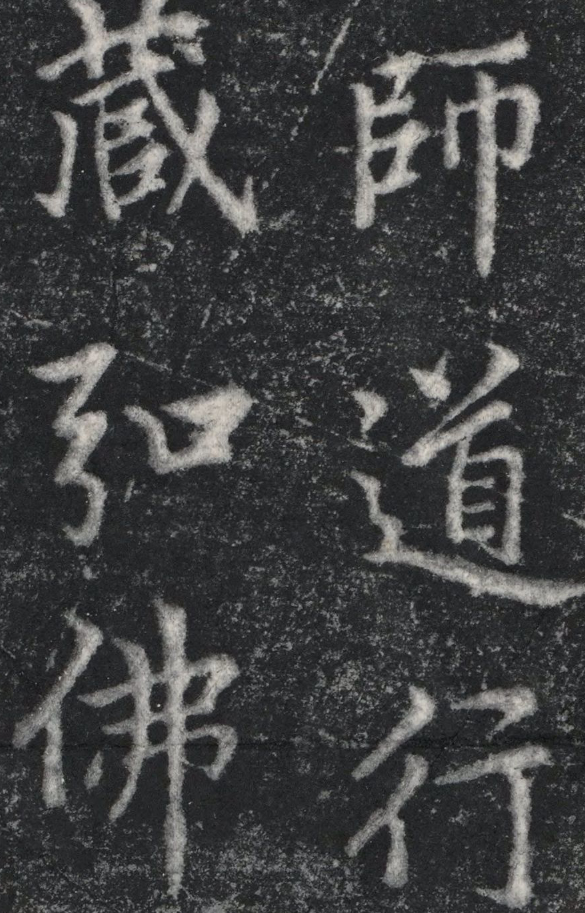 師道行
藏弘佛